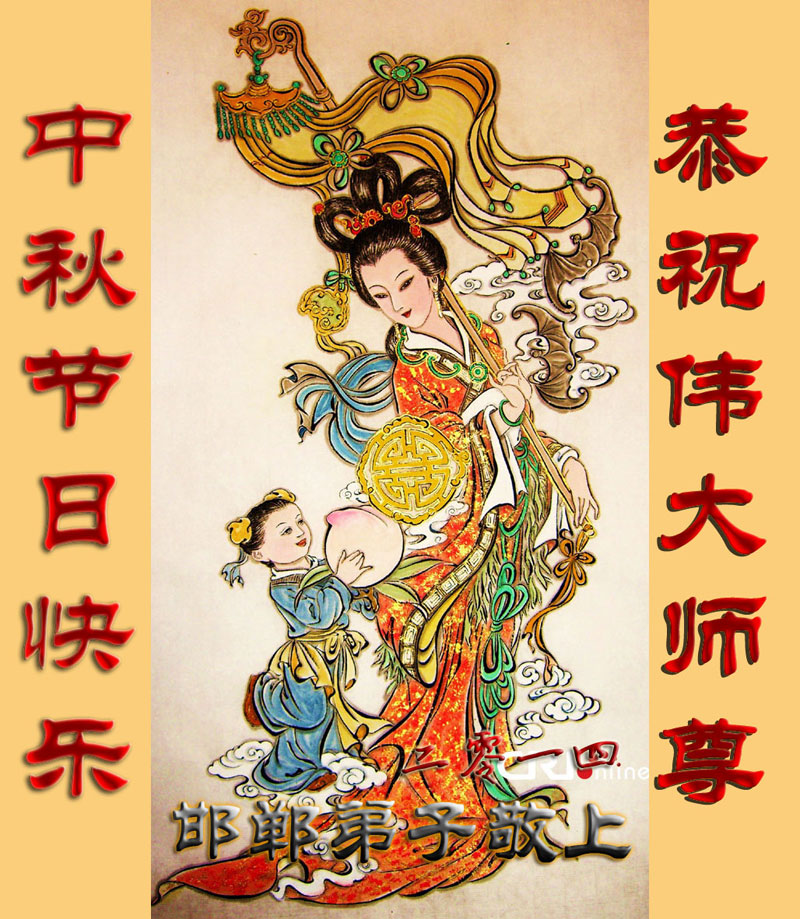 恭祝伟大师尊
中秋节日快乐
二零一四
CRI Online
邯郸弟子敬上